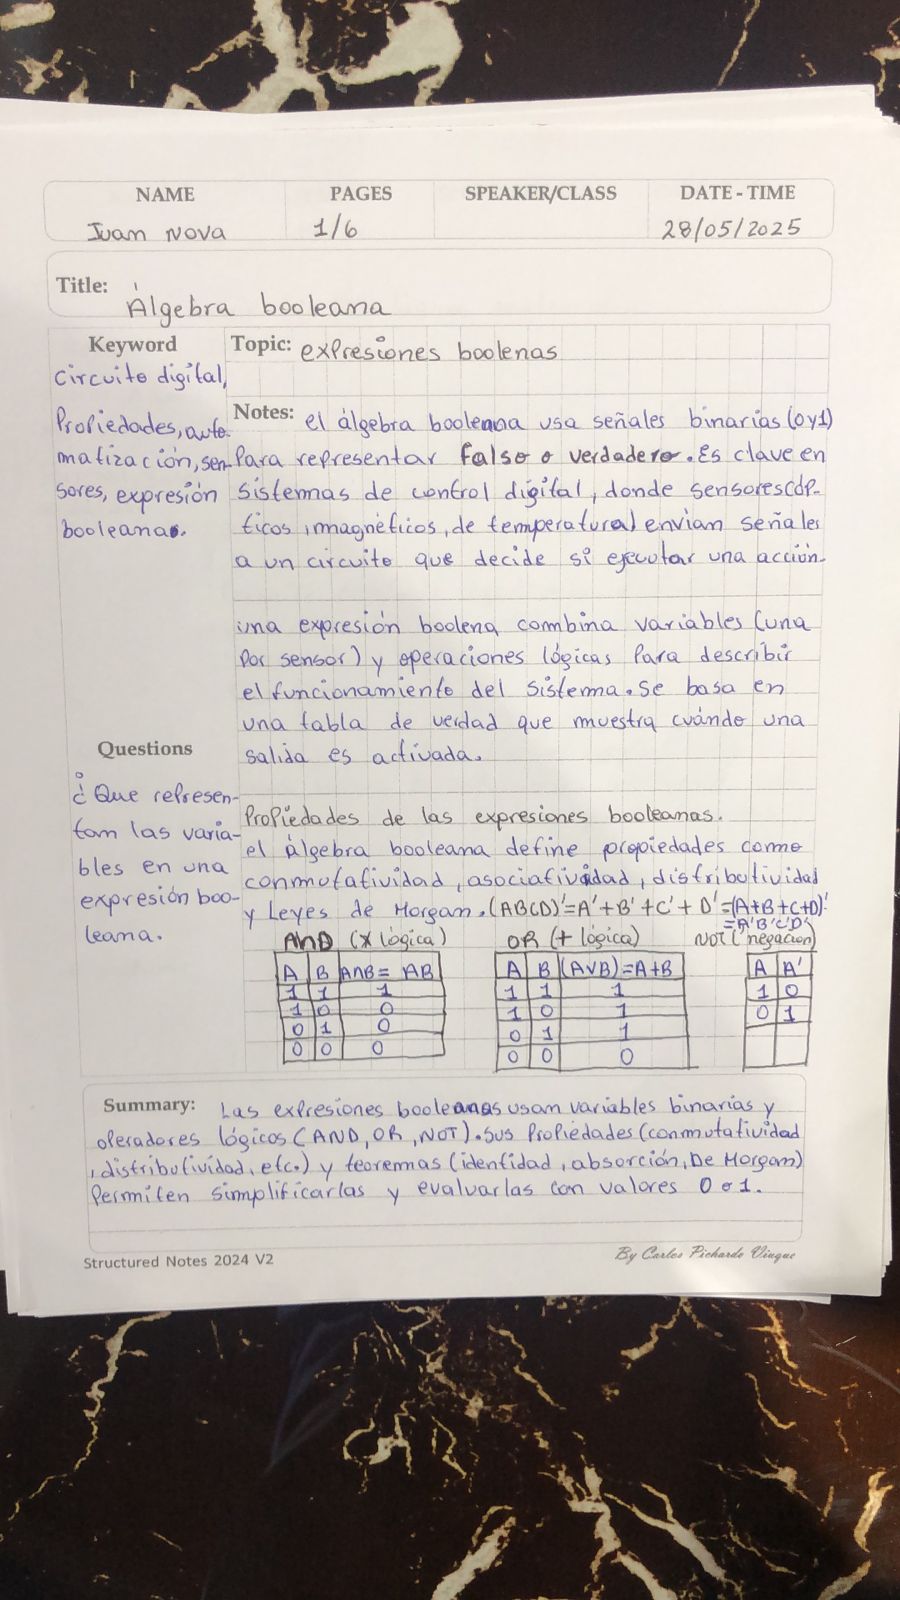 NAME PAGES SPEAKER/CLASS DATE - TIME
Iuan Nova 1/6 28/05/2025
Title: Álgebra booleana
Keyword
Circuito digital,
Propiedades, auto-
matización, sen-
sores, expresión
booleanas.
Topic: expresiones boolenas
Notes: el álgebra booleana usa señales binarias (0 y 1)
Para representar falso o verdadero. Es clave en
sistemas de control digital, donde sensores (óp-
ticos, magnéticos, de temperatura) envían señales
a un circuito que decide si ejecutar una acción.
una expresión boolena combina variables (una
por sensor) y operaciones lógicas Para describir
el funcionamiento del sistema. Se basa en
una tabla de verdad que muestra cuándo una
salida es activada.
Questions
¿Que represen-
tan las varia-
bles en una
expresión boo-
leana.
Propiedades de las expresiones booleanas.
el álgebra booleana define propiedades como
conmutatividad, asociatividad, distributividad
y Leyes de Morgan. (ABCD)'=A'+B'+C'+D'=(A+B+C+D)'
=A'B'C'D'
AND (x lógica) OR (+ lógica) NOT (' negación)
A B A∩B= AB
1 1 1
1 0 0
0 1 0
0 0 0
A B (A∨B)=A+B
1 1 1
1 0 1
0 1 1
0 0 0
A A'
1 0
0 1
Summary: Las expresiones booleanas usan variables binarias y
operadores lógicos (AND, OR, NOT). Sus Propiedades (conmutatividad
, distributividad, etc.) y teoremas (identidad, absorción, De Morgan)
Permiten simplificarlas y evaluarlas con valores 0 o 1.
Structured Notes 2024 V2
By Carlos Pichardo Viuque